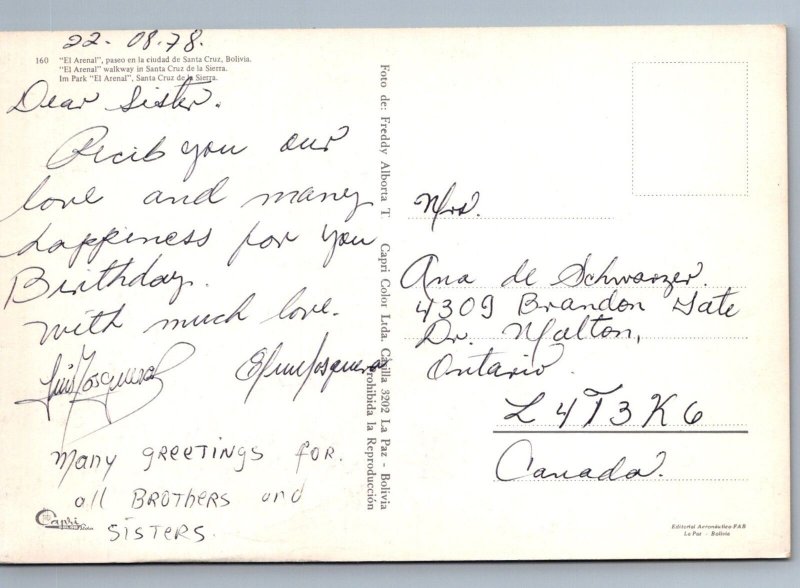 22-08.78.
160 "El Arenal", paseo en la ciudad de Santa Cruz, Bolivia.
"El Arenal" walkway in Santa Cruz de la Sierra.
Im Park "El Arenal", Santa Cruz de la Sierra.
Dear Sister.
Recib you our
love and many
happiness for you
Birthday.
with much love.
Luis Mosquera
Mosquera
Many GREETINGS FOR.
all BROTHERS and
SISTERS.
Capri
Foto de: Freddy Alborta T. Capri Color Ltda. Casilla 3202 La Paz - Bolivia
Prohibida la Reproducción
Mrs.
Ana de Schwarzer.
4309 Brandon Gate
Dr. Malton,
Ontario.
L4T3K6
Canada.
Editorial Aeronáutica-FAB
La Paz - Bolivia